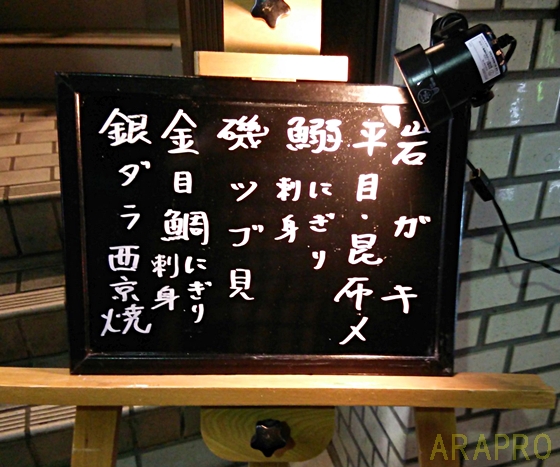 岩ガキ
平目・昆布〆
鰯 にぎり 刺身
磯ツブ貝
金目鯛 にぎり 刺身
銀ダラ西京焼
ARAPRO